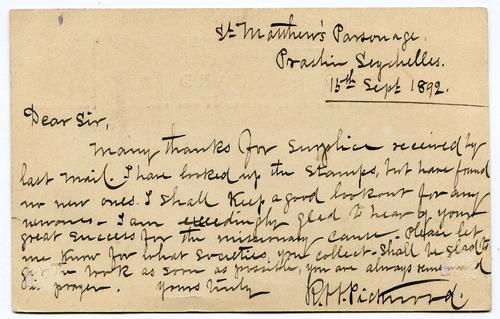 St. Matthew's Parsonage.
Praslin Seychelles.
15th Sept 1892.
Dear Sir,
Many thanks for surplice received by
last mail. I have looked up the stamps, but have found
no new ones. I shall keep a good lookout for any
new ones - I am exceedingly glad to hear of your
great success for the missionary cause. Please let
me know for what societies, you collect. Shall be glad to
get the book as soon as possible, you are always remembered
in prayer. Yours truly
R.H. Pickwood.